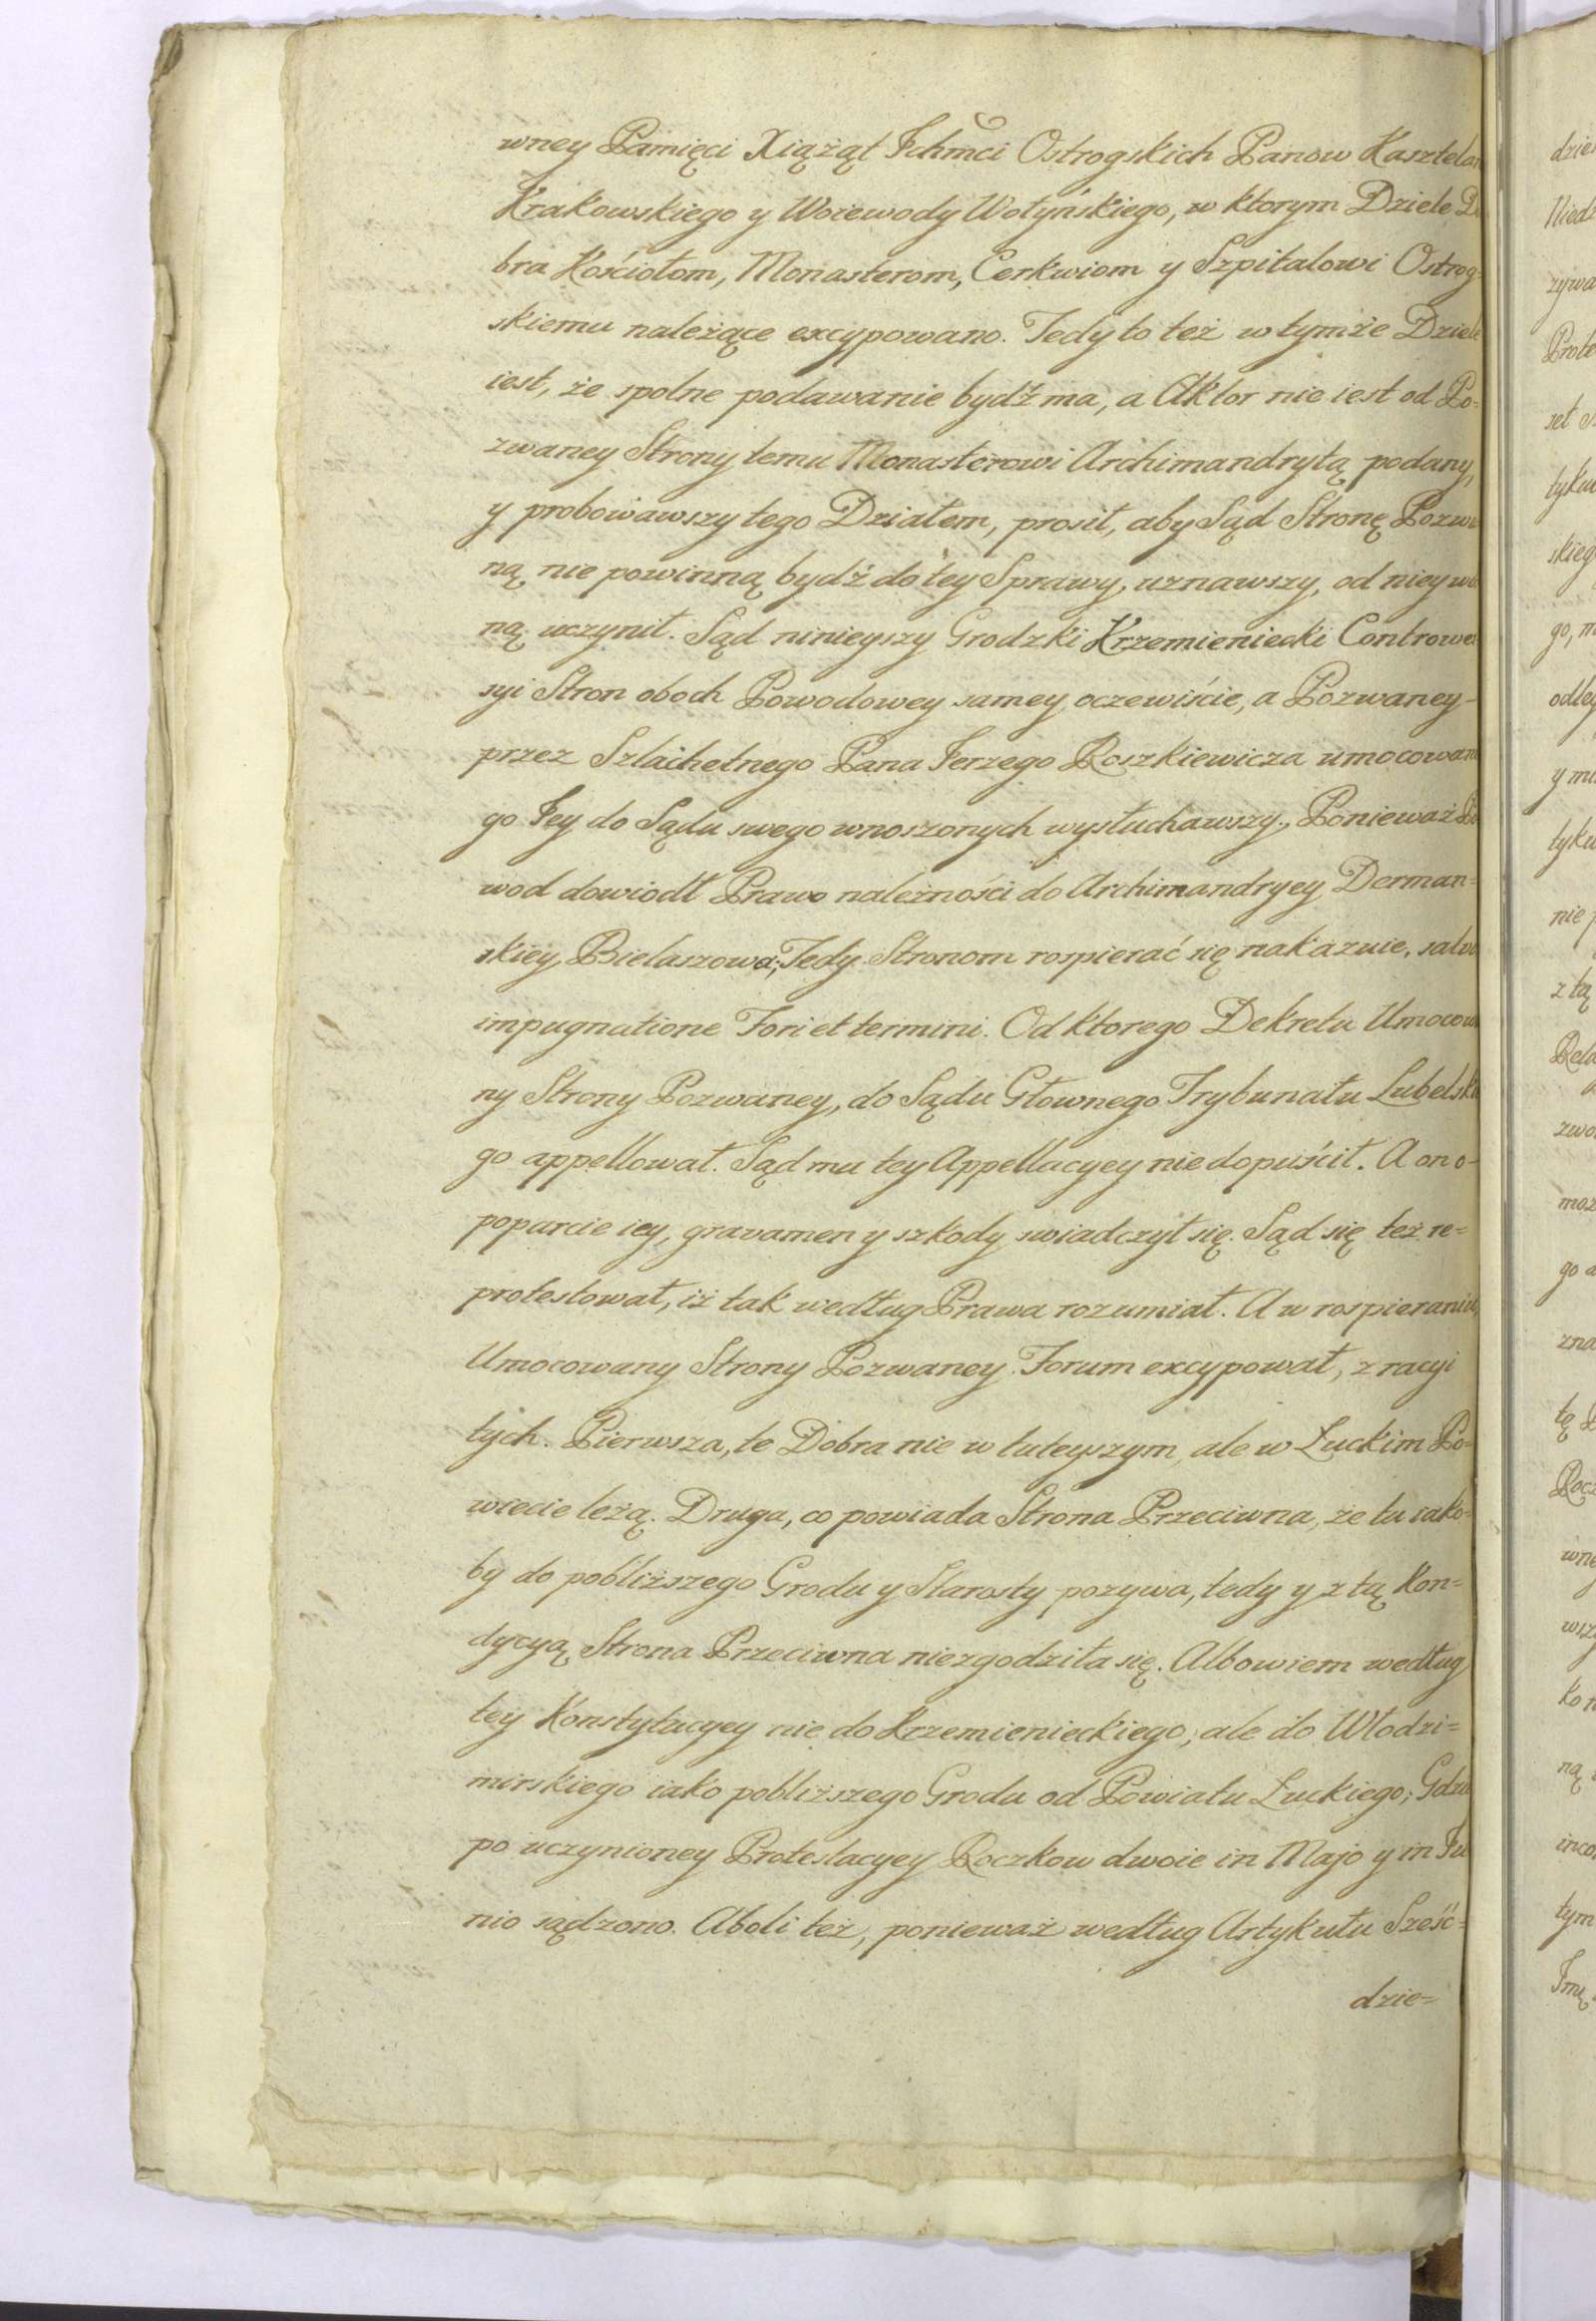 wney Pamięci Xiążąt Ichmci Ostrogskich Panow Kasztelan
Krakowskiego y Woiewody Wołyńskiego, w ktorym Dziele D
bra Kościołom, Monasterom, Cerkwiom y Szpitalowi Ostrog=
skiemu należące excypowano. Tedy to też w tymże Dziele
iest, że spolne podawanie bydź ma, a Aktor nie iest od Po=
zwaney Strony temu Monasterowi Archimandrytą podany,
y probowawszy tego Działem, prosił, aby Sąd Stronę Pozwa
ną nie powinną bydź do tey Sprawy, uznawszy, od niey wo
ną uczynił. Sąd ninieyszy Grodzki Krzemieniecki Controwe
syi Stron oboch Powodowey samey oczewiście, a Pozwaney
przez Szlachetnego Pana Ierzego Roszkiewicza umocowane
go Iey do Sądu swego wnoszonych wysłuchawszy, Ponieważ Po
wod dowiodł Prawo należności do Archimandryey Derman=
skiey Bielaszowa; Tedy Stronom rospierać się nakazuie, salva
impugnatione Fori et termini. Od ktorego Dekretu Umocowa
ny Strony Pozwaney, do Sądu Głownego Trybunału Lubelski
go appellował. Sąd mu tey Appellacyey nie dopuścił. A on o=
poparcie iey, gravamen y szkody swiadczył się. Sąd się też re=
protestował, iż tak według Prawa rozumiał. A w rospieraniu,
Umocowany Strony Pozwaney Forum excypował, z racyi
tych. Pierwsza, te Dobra nie w tuteyszym, ale w Łuckim Po=
wiecie leżą. Druga, co powiada Strona Przeciwna, że tu iako=
by do pobliższego Grodu y Starosty pozywa, tedy y z tą Kon=
dycyą Strona Przeciwna niezgodziła się. Albowiem według
tey Konstytucyey nie do Krzemienieckiego, ale do Włodzi=
mirskiego iako pobliższego Grodu od Powiatu Łuckiego; Gdzie
po uczynioney Protestacyey Roczkow dwoie in Majo y in Iu
nio sądzono. Aboli też, ponieważ według Artykułu Sześć=
dzie=